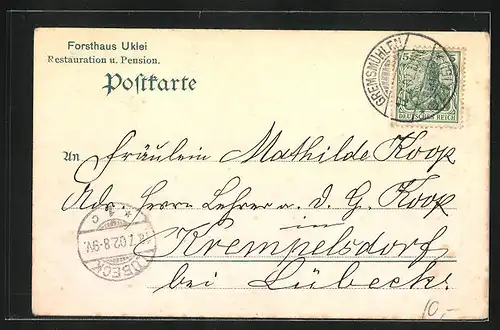 Forsthaus Uklei
Restauration u. Pension.
Postkarte
GREMSMÜHLEN
DEUTSCHES REICH
An Fräulein Mathilde Koop
Adr. Herrn Lehrer a. D. G. Koop
in
Krempelsdorf
bei Lübeck.
LÜBECK
7.02.8-9V.
* 1 c
10,-